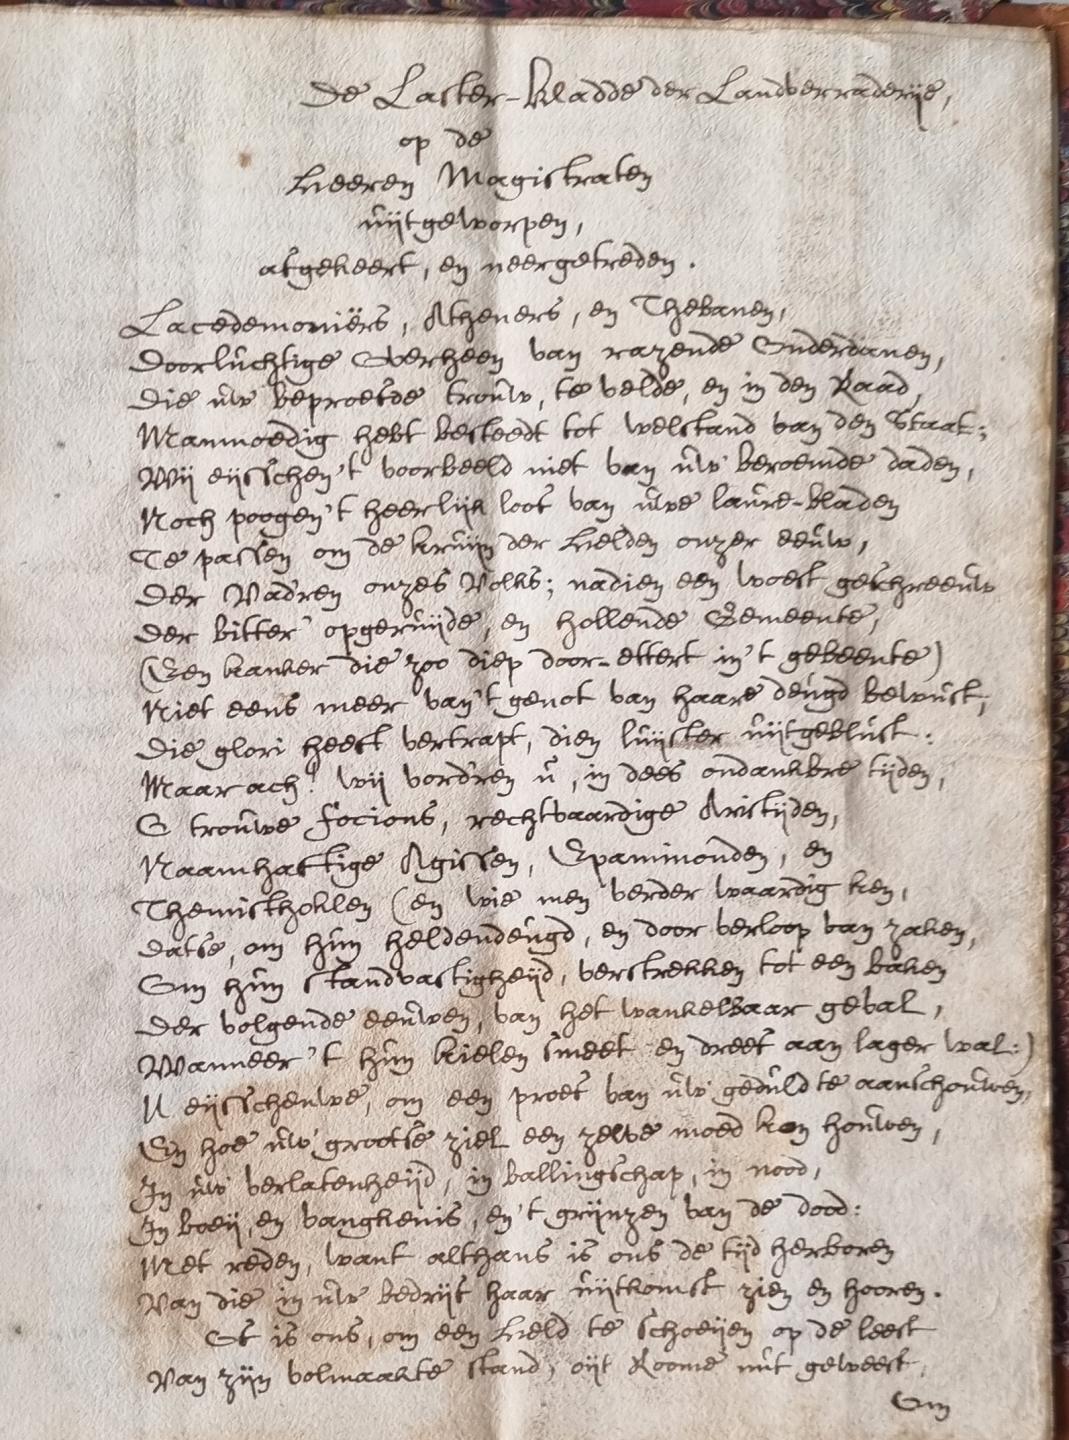 De Laster-kladde der Landverraderije,
op de
Heeren Magistraten
uijtgeworpen,
afgekeert, en neergetreden.
Lacedemoniërs, Atheners, en Thebanen,
Doorluchtige Overheen van razende Onderdanen,
Die uw beproefde trouw, te velde, en in den Raad,
Manmoedig hebt besteedt tot welstand van den Staat;
Wij eijsschen 't voorbeeld niet van uw beroemde daden,
Noch poogen 't heerlijk loof van uwe laure-bladen
Te passen om de kruijn der Helden onzer eeuw,
Der Vadren onzes Volks; nadien een woest geschreeuw
Der bitter opgeruijde, en hollende Gemeente,
(Een kanker die zoo diep door-ettert in 't gebeente)
Niet eens meer van 't genot van haare deugd bewust,
Die glori heeft vertrapt, dien luijster uijtgeblust:
Maar ach! wij vord'ren u, in dees ondankbre tijden,
O trouwe Focions, rechtvaardige Aristijden,
Naamhaftige Agissen, Epaminonden, en
Themisthoklen (en wie men verder waardig ken,
Datse, om hun heldendeugd, en door verloop van zaken,
Om hun standvastigheijd, verstrekken tot een baken
Der volgende eeuwen, van het wankelbaar geval,
Wanneer 't hun kielen smeet en dreef aan lager wal:)
U eijsschenwe, om een proef van uw geduld te aanschouwen,
En hoe uw grootse ziel een zelve moed kon houwen,
In uw verlatenheijd, in ballingschap, in nood,
In boeij, en vangkenis, en 't grijnzen van de dood:
Met reden, want althans is ons de tijd herboren
Van die in uw bedrijf haar uijtkomst zien en hooren.
Of is ons, om een Held te schoeijen op de leest
Van zijn volmaakte stand, oijt Roome nut geweest,
Om